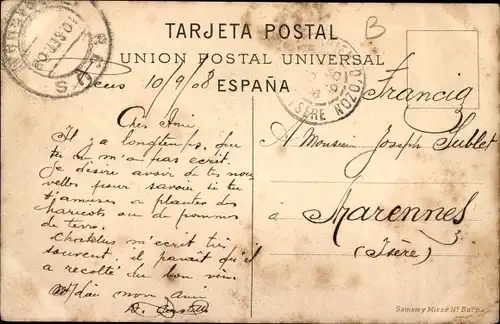 TARJETA POSTAL
UNION POSTAL UNIVERSAL
ESPAÑA
REUS
10 SET 08
D'OZON
ISÈRE
Reus 10/9/08
Cher Ami
Il y a longtemps, que
tu ne m'a pas écrit.
Je désire avoir de tes nou
velles pour savoir si tu
t'amuses a planter des
haricots ou de pommes
de terre.
Chatelus m'ecrit très
souvent, il parait qu'il
a recolté du bon vin.
mon ami
Francia
A Monsieur Joseph Sublet
à
Marennes
(Isère)
Samsot y Missé Hs Barna
B